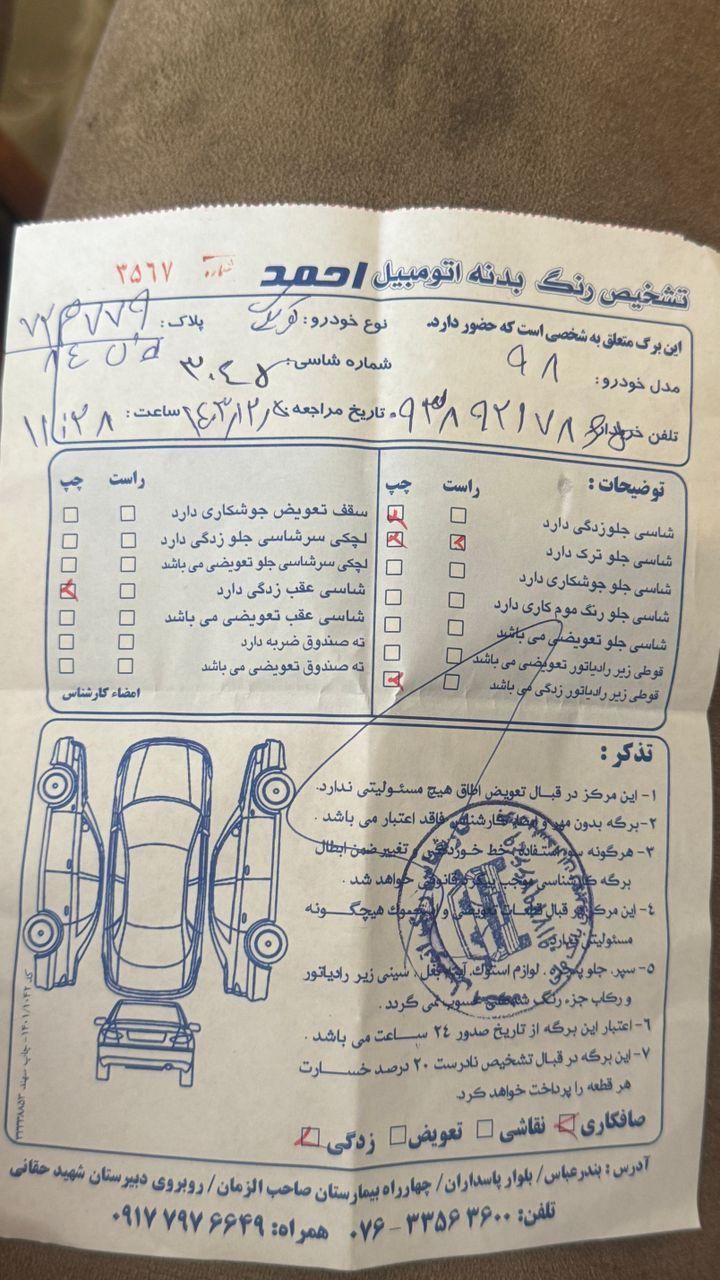 تشخیص رنگ بدنه اتومبیل احمد
شماره ۳۵۶۷
این برگ متعلق به شخصی است که حضور دارد.
نوع خودرو:
پلاک: ۷۷۹
مدل خودرو: ۹۸
شماره شاسی:
تلفن خریدار:
تاریخ مراجعه:
ساعت: ۱۱:۳۸
توضیحات:
راست چپ
شاسی جلو زدگی دارد
شاسی جلو ترک دارد
شاسی جلو جوشکاری دارد
شاسی جلو رنگ موم کاری دارد
شاسی جلو تعویضی می باشد
قوطی زیر رادیاتور تعویضی می باشد
قوطی زیر رادیاتور زدگی می باشد
راست چپ
سقف تعویض جوشکاری دارد
لچکی سرشاسی جلو زدگی دارد
لچکی سرشاسی جلو تعویضی می باشد
شاسی عقب زدگی دارد
شاسی عقب تعویضی می باشد
ته صندوق ضربه دارد
ته صندوق تعویضی می باشد
امضاء کارشناس
تذکر:
۱- این مرکز در قبال تعویض اطاق هیچ مسئولیتی ندارد.
۲- برگه بدون مهر و امضاء کارشناس فاقد اعتبار می باشد.
۳- هرگونه سوء استفاده، خط خوردگی و تغییر ضمن ابطال
برگه کارشناسی موجب پیگرد قانونی خواهد شد.
۴- این مرکز در قبال قطعات تعویضی و هیچگونه
مسئولیتی ندارد.
۵- سپر، جلو پنجره، لوازم استوک، آینه بغل، سینی زیر رادیاتور
و رکاب جزء رنگ محسوب نمی گردد.
۶- اعتبار این برگه از تاریخ صدور ۲۴ ساعت می باشد.
۷- این برگه در قبال تشخیص نادرست ۲۰ درصد خسارت
هر قطعه را پرداخت خواهد کرد.
صافکاری نقاشی تعویض زدگی
کد ۱۰۴۲/۱۴۰۱- چاپ سهند
آدرس: بندرعباس/ بلوار پاسداران/ چهارراه بیمارستان صاحب الزمان/ روبروی دبیرستان شهید حقانی
تلفن: ۳۶۰۰ ۳۳۵۶ - ۰۷۶ همراه: ۶۶۴۹ ۷۹۷ ۰۹۱۷